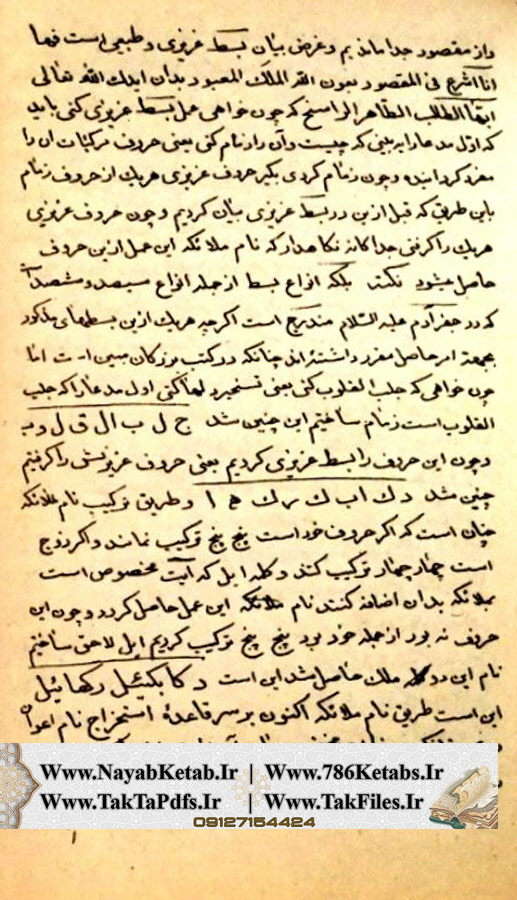 و از مقصود جدا مانديم و غرض بيان بسط عزيزى و طبيعى است فها
انا اشرع فى المقصود بعون الله الملك المعبود بدان ايدك الله تعالى
ايها الطالب الطاهر الراسخ كه چون خواهى عمل بسط عزيزى كنى بايد
كه اول مدعا را به بينى كه چيست و آن را زمام كنى يعنى حروف مركبات ان را
مفرد كردانيده و چون زمام كردى بكير حروف عزيزى هريك از حروف زمام
باين طريق كه قبل ازين در بسط عزيزى بيان كرديم و چون حروف عزيزى
هريك را كرفتى جداكانه نكاهدار كه نام ملائكه اين عمل ازين حروف
حاصل ميشود بلكه انواع بسط از جمله انواع سيصد و شصت
كه در جفر آدم عليه السلام مندرج است اكرچه هريك ازين بسطهاى مذكور
بجهة امر حاصل مقرر داشته اند چنانكه در كتب بزركان مبين است اما
چون خواهى كه جلب القلوب كنى يعنى تسخير دلها كنى اول مدعا را كه جلب
القلوب است زمام ساختيم اين چنين شد ج ل ب ا ل ق ل و ب
و چون اين حروف را بسط عزيزى كرديم يعنى حروف عزيزش را كرفتيم
چنين شد د ك ا ب ك ر ك ه ا و طريق تركيب نام ملائكه
چنان است كه اكر حروف خود است پنج پنج تركيب نمايند و اكر زوج
است چهار چهار تركيب كنند و كلمه ايل كه آيت مخصوص است
بملائكه بدان اضافه كنند نام ملائكه اين عمل حاصل كردد و چون اين
حرف نه بود از جمله خود بود پنج پنج تركيب كرديم ايل لاحق ساختيم
نام اين دو ملك حاصل شد اين است دكابكئيل ركهائيل
اين است طريق نام ملائكه اكنون بر سر قاعدۀ استخراج نام اعوان
www.NayabKetab.Ir | Www.786Ketabs.Ir
Www.TakTaPdfs.Ir | Www.TakFiles.Ir
09127154424